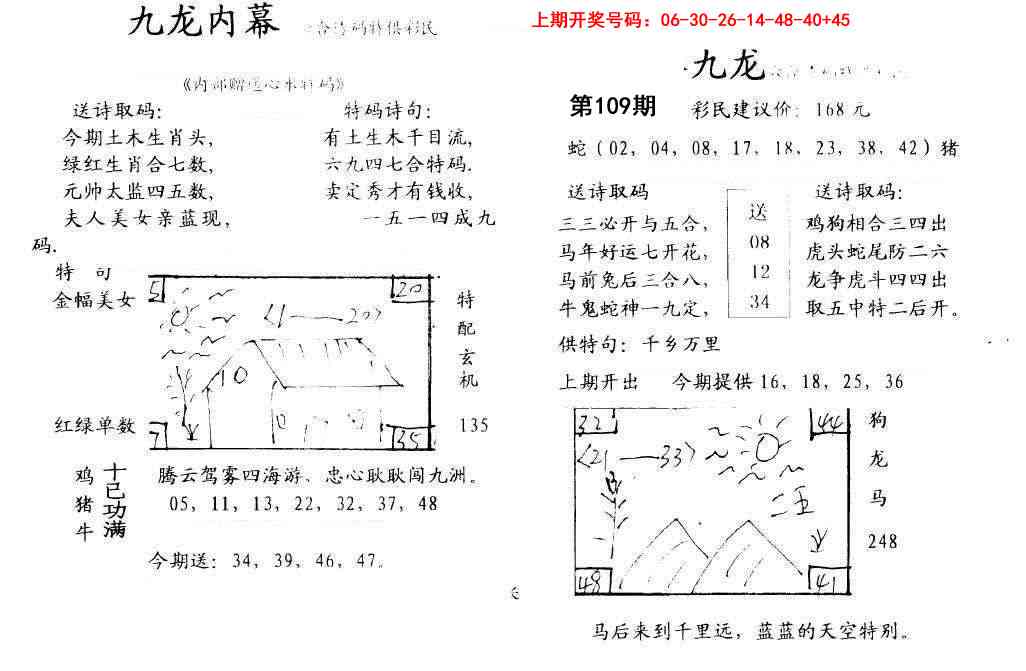 九龙内幕
上期开奖号码：06-30-26-14-48-40+45
送诗取码：
今期土木生肖头，
绿红生肖合七数，
元帅太监四五数，
夫人美女亲蓝现，
特码诗句：
有土生木千目流，
六九四七合特码.
卖定秀才有钱收，
一五一四成九
码.
特 句
金幅美女
红绿单数
5
20
<1——20>
10
0
7
35
特
配
玄
机
135
鸡
猪
牛
十
已
功
满
腾云驾雾四海游、忠心耿耿闯九洲。
05，11，13，22，32，37，48
今期送：34，39，46，47。
九龙
第109期
彩民建议价：168元
蛇（02，04，08，17，18，23，38，42）猪
送诗取码
三三必开与五合，
马年好运七开花，
马前兔后三合八，
牛鬼蛇神一九定，
送
08
12
34
送诗取码：
鸡狗相合三四出
虎头蛇尾防二六
龙争虎斗四四出
取五中特二后开。
供特句：千乡万里
上期开出 今期提供16，18，25，36
32
44
<21——33>
48
41
狗
龙
马
248
马后来到千里远，蓝蓝的天空特别。